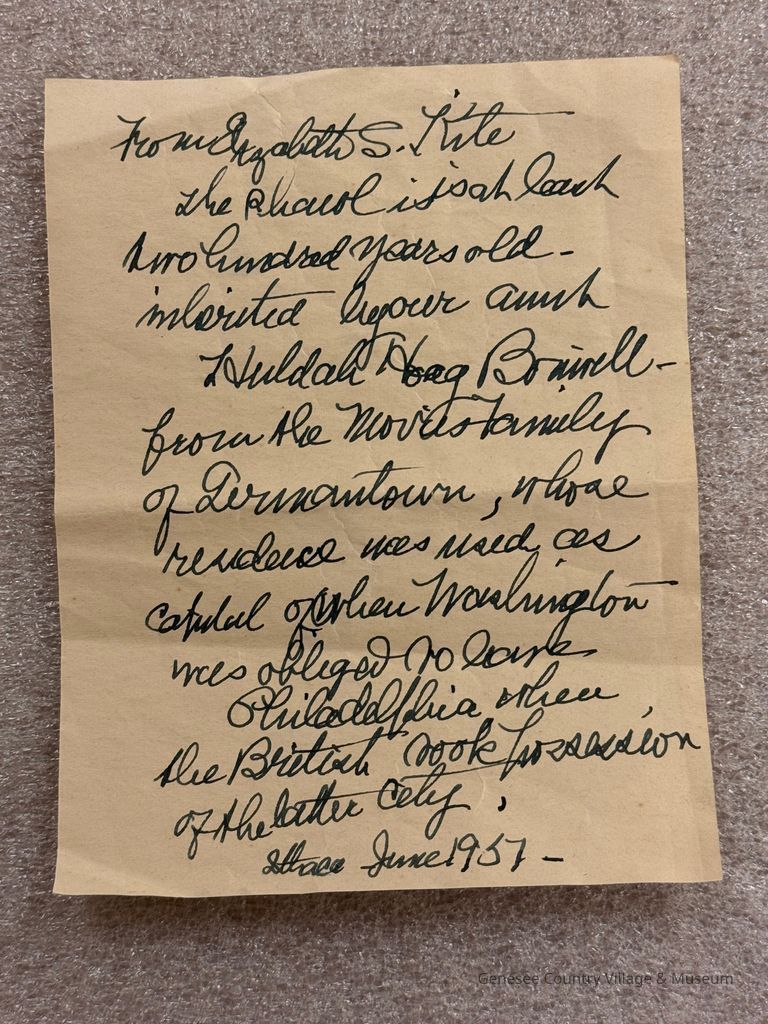 From Elizabeth S. Kite
The shawl is at least
two hundred years old -
inherited by our aunt
Huldah Hoag Bonwell -
from the Morris Family
of Germantown, whose
residence was used as
capital of when Washington
was obliged to leave
Philadelphia when
the British took possession
of the latter city,
Ithaca June 1957 -
Genesee Country Village & Museum